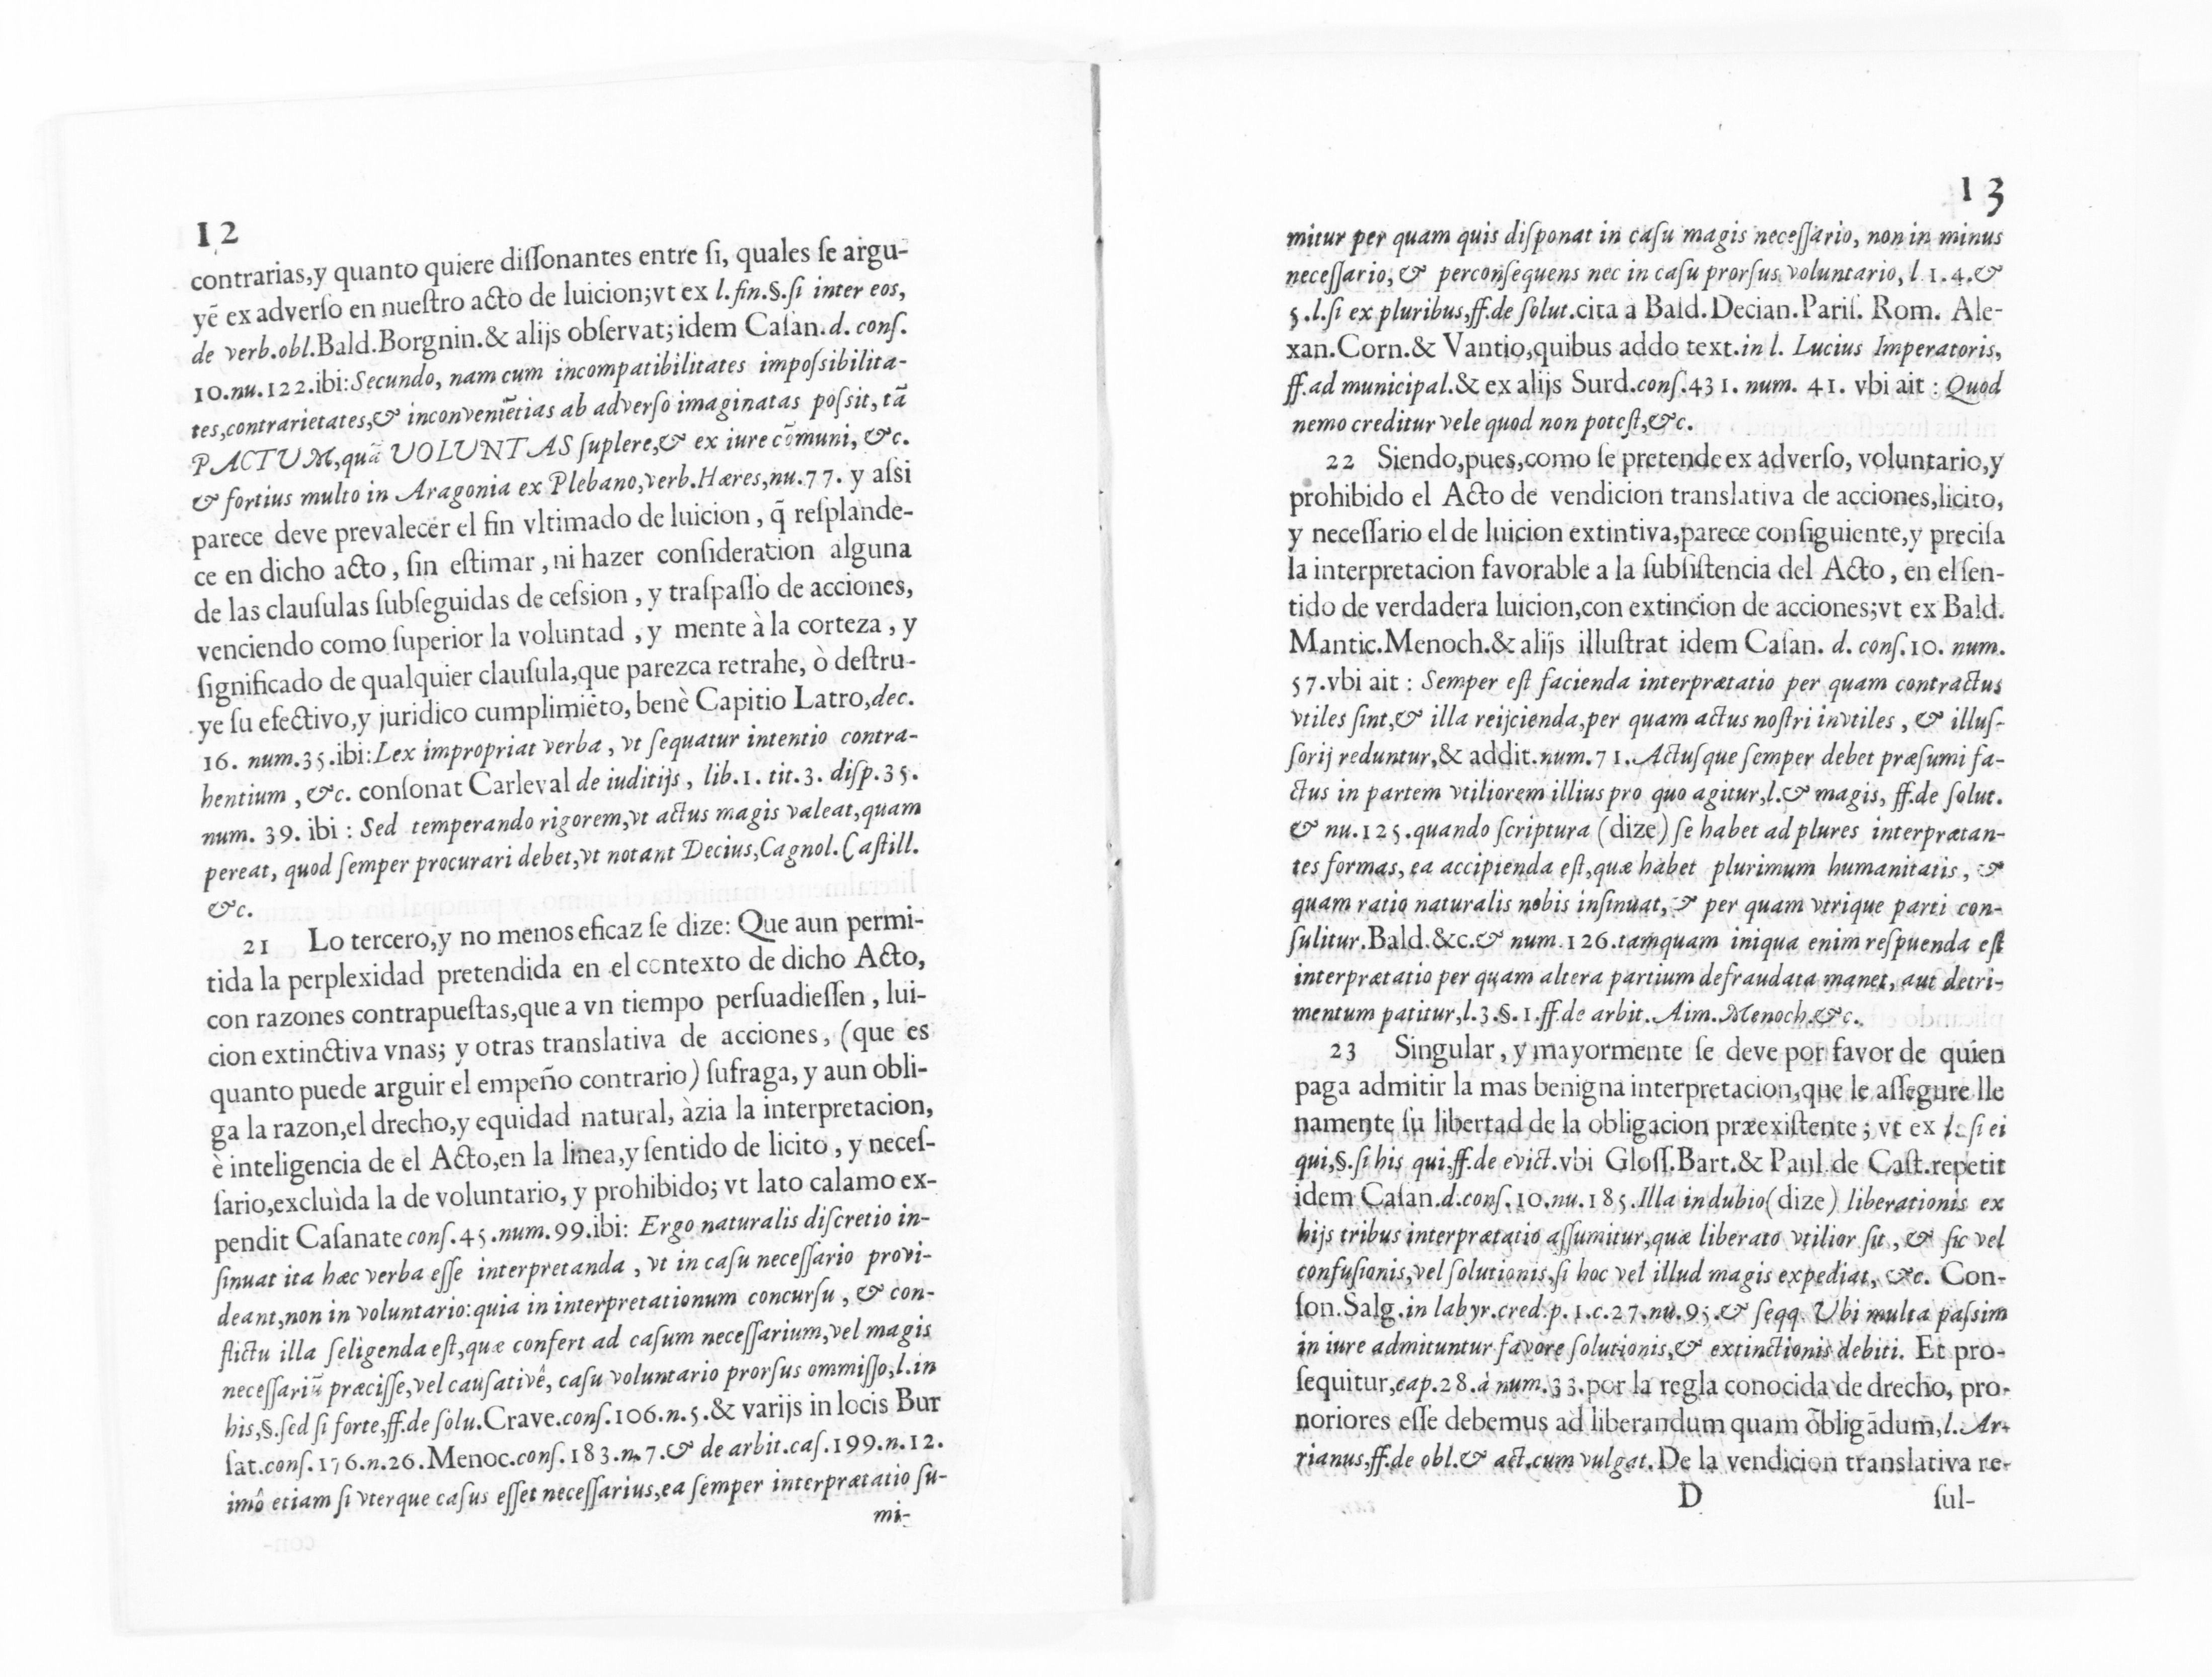 12
contrarias,y quanto quiere diſſonantes entre ſi, quales ſe argu-
yẽ ex adverſo en nueſtro acto de luicion;vt ex l.fin.§.ſi inter eos,
de verb.obl.Bald.Borgnin.& alijs obſervat;idem Caſan.d. conſ.
10.nu.122.ibi:Secundo, nam cum incompatibilitates impoſsibilita-
tes,contrarietates,& inconveniẽtias ab adverſo imaginatas poſsit, tã
PACTUM,quã VOLUNTAS ſuplere,& ex iure cõmuni, &c.
& fortius multo in Aragonia ex Plebano,verb.Hæres,nu.77. y aſsi
parece deve prevalecer el fin vltimado de luicion , q̃ reſplande-
ce en dicho acto , ſin eſtimar , ni hazer conſideration alguna
de las clauſulas ſubſeguidas de ceſsion , y traſpaſſo de acciones,
venciendo como ſuperior la voluntad , y mente à la corteza , y
ſignificado de qualquier clauſula,que parezca retrahe, ò deſtru-
ye ſu efectivo,y juridico cumplimiẽto, benè Capitio Latro,dec.
16. num.35.ibi:Lex impropriat verba , vt ſequatur intentio contra-
hentium , &c. conſonat Carleval de iuditijs , lib.1. tit.3. diſp.35.
num. 39. ibi : Sed temperando rigorem,vt actus magis valeat,quam
pereat, quod ſemper procurari debet,vt notant Decius,Cagnol.Caſtill.
&c.
21 Lo tercero,y no menos eficaz ſe dize: Que aun permi-
tida la perplexidad pretendida en el contexto de dicho Acto,
con razones contrapueſtas,que a vn tiempo perſuadieſſen , lui-
cion extinctiva vnas; y otras translativa de acciones, (que es
quanto puede arguir el empeño contrario) ſufraga, y aun obli-
ga la razon,el drecho,y equidad natural, àzia la interpretacion,
è inteligencia de el Acto,en la linea,y ſentido de licito , y neceſ-
ſario,excluìda la de voluntario, y prohibido; vt lato calamo ex-
pendit Caſanate conſ.45.num.99.ibi: Ergo naturalis diſcretio in-
ſinuat ita hæc verba eſſe interpretanda , vt in caſu neceſſario provi-
deant,non in voluntario:quia in interpretationum concurſu , & con-
flictu illa ſeligenda eſt,quæ confert ad caſum neceſſarium,vel magis
neceſſariũ præciſſe,vel cauſativê, caſu voluntario prorſus ommiſſo,l.in
his,§.ſed ſi forte,ff.de ſolu.Crave.conſ.106.n.5.& varijs in locis Bur
ſat.conſ.176.n.26.Menoc.conſ.183.n.7.& de arbit.caſ.199.n.12.
imô etiam ſi vterque caſus eſſet neceſſarius,ea ſemper interprætatio ſu-
mi-
13
mitur per quam quis diſponat in caſu magis neceſſario, non in minus
neceſſario, & perconſequens nec in caſu prorſus voluntario, l.1.4.&
5.l.ſi ex pluribus,ff.de ſolut.cita a Bald.Decian.Pariſ. Rom. Ale-
xan.Corn.& Vantio,quibus addo text.in l. Lucius Imperatoris,
ff.ad municipal.& ex alijs Surd.conſ.431. num. 41. vbi ait : Quod
nemo creditur vele quod non poteſt,&c.
22 Siendo,pues,como ſe pretende ex adverſo, voluntario,y
prohibido el Acto de vendicion translativa de acciones,licito,
y neceſſario el de luicion extintiva,parece conſiguiente,y preciſa
la interpretacion favorable a la ſubſiſtencia del Acto , en el ſen-
tido de verdadera luicion,con extincion de acciones;vt ex Bald.
Mantic.Menoch.& alijs illuſtrat idem Caſan. d. conſ.10. num.
57.vbi ait : Semper eſt facienda interprætatio per quam contractus
vtiles ſint,& illa reijcienda,per quam actus noſtri invtiles , & illuſ-
ſorij reduntur,& addit.num.71.Actuſque ſemper debet præſumi fa-
ctus in partem vtiliorem illius pro quo agitur,l.& magis, ff.de ſolut.
& nu.125.quando ſcriptura (dize) ſe habet ad plures interprætan-
tes formas, ea accipienda eſt,quæ habet plurimum humanitatis , &
quam ratio naturalis nobis inſinuat, & per quam vtrique parti con-
ſulitur.Bald.&c.& num.126.tamquam iniqua enim reſpuenda eſt
interprætatio per quam altera partium defraudata manet, aut detri-
mentum patitur,l.3.§.1.ff.de arbit. Aim.Menoch.&c.
23 Singular, y mayormente ſe deve por favor de quien
paga admitir la mas benigna interpretacion,que le aſſegure lle
namente ſu libertad de la obligacion præexiſtente ; vt ex l.ſi ei
qui,§.ſi his qui,ff.de evict.vbi Gloſſ.Bart.& Paul.de Caſt.repetit
idem Caſan.d.conſ.10.nu.185.Illa in dubio(dize) liberationis ex
hijs tribus interprætatio aſſumitur,quæ liberato vtilior ſit , & ſic vel
confuſionis,vel ſolutionis,ſi hoc vel illud magis expediat, &c. Con-
ſon.Salg.in labyr.cred.p.1.c.27.nu.95.& ſeqq. Ubi multa paſsim
in iure admituntur favore ſolutionis,& extinctionis debiti. Et pro-
ſequitur,cap.28.à num.33.por la regla conocida de drecho, pro-
noriores eſſe debemus ad liberandum quam õbligãdum,l.Ar-
rianus,ff.de obl.& act.cum vulgat.De la vendicion translativa re-
D ſul-